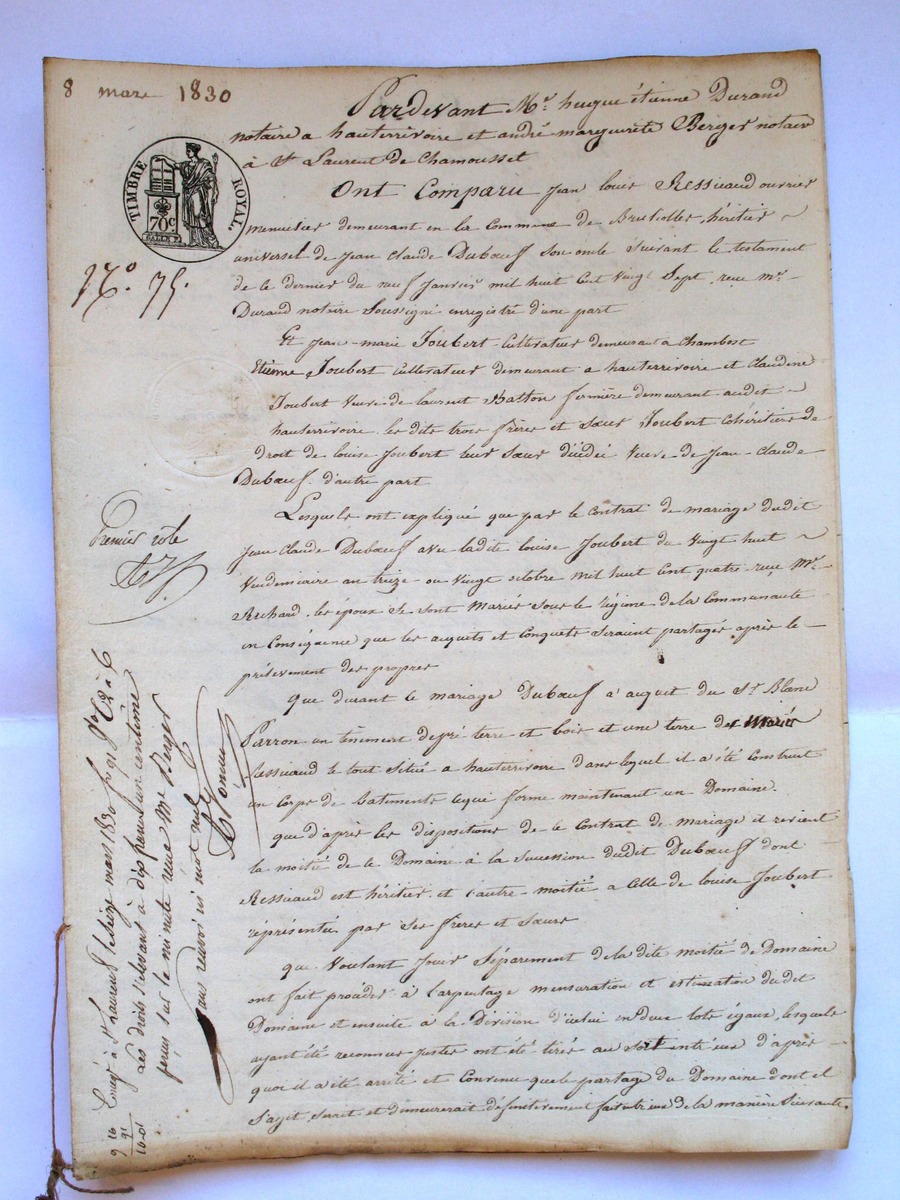 8 mars 1830
Pardevant Me. hugue étienne Durand
notaire a hauterrivoire et andré marguerite Berger notaire
à St Laurent de Chamousset
TIMBRE ROYAL
70c
No. 75.
Ont Comparu Jean louis Ressicaud ouvrier
menuisier demeurant en la Commune de Brussolles, héritier
universel de Jean Claude Dubœuf son oncle suivant le testament
de le dernier du neuf Janvier mil huit cent vingt Sept, reçu Me.
Durand notaire Soussigné enregistré d'une part
Et Jean-marie Joubert Cultivateur demeurant à Chambost
Etienne Joubert Cultivateur demeurant a hauterrivoire et Claudine
Joubert Veuve de laurent Baston fermière demeurant audit
hauterrivoire les dits trois frères et Sœur Joubert Cohéritiers de
droit de louise Joubert leur Sœur décédée Veuve de Jean-Claude
Dubœuf d'autre part
Lesquels ont expliqué que par le Contrat de mariage dudit
Jean Claude Dubœuf avec ladite louise Joubert du Vingt huit
Vendemiaire an treize ou Vingt octobre mil huit cent quatre reçu Me.
Richard les époux Se Sont Mariés Sous le régime de la Communauté
en Conséquence que les acquets et Conquets Seraient partagés après le
prélevement des propres
Premier rôle
Que durant le mariage Dubœuf a acquit du Sr. Blanc
Parron un tènement de pré terre et bois et une terre des Mariés
Ressicaud le tout Situé a hauterrivoire dans lequel il a été Construit
un Corps de Batiments lequel forme maintenant un Domaine.
que d'après les dispositions de le Contrat de mariage il revient
la moitié de le Domaine à la Succession dudit Dubœuf dont
Ressicaud est héritier et l'autre moitié a Celle de louise Joubert
représentée par Ses frères et Sœurs
que Voulant Jouir Séparement de la dite moitié de Domaine
ont fait procéder à l'arpentage mensuration et estimation dudit
Domaine et ensuite à la Division d'icelui en deux lots égaux, lesquels
ayant été reconnus Justes ont été tirés au Sort entr'eux d'après
quoi il a été arrêté et Convenu que le partage du Domaine dont il
s'agit Serait et demeurerait définitivement fait de la manière Suivante.
à St Laurent le Seize mars 1830
Les droits s'élevant à dix francs un centime
perçus sur la minute reçue Me Berger
Sans renvoi ni mot nul
9 16
91
10-01